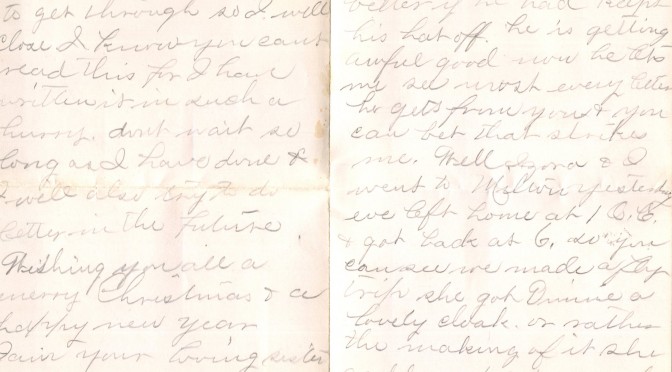 to get through so I will
close I know you cant
read this for I have
written it in such a
hurry. dont wait so
long as I have done &
I will also try to do
better in the future.
Wishing you all a
merry Christmas & a
happy new year
I am your loving sister
better if he had kept
his hat off. he is getting
awful good now he lets
me see most every letter
he gets from you & you
can bet that strikes
me. Well & I
went to yesterday
eve left home at 1 O.C.
& got back at 6. so you
can see we made a fly
trip she got a
lovely cloak. or rather
the making of it she